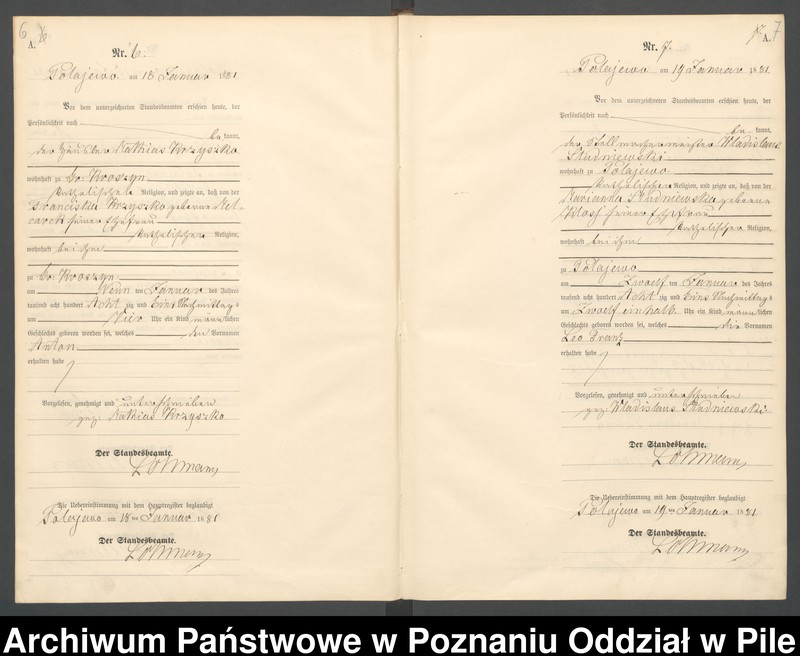 6
A.
Nr. 6.
Polajewo am 18 Januar 1881
Vor dem unterzeichneten Standesbeamten erschien heute, der
Persönlichkeit nach
be kannt,
der Häusler Mathias Krzyszko
wohnhaft zu Gr. Kroszyn
katholischer Religion, und zeigte an, daß von der
Franciska Krzyszko geborene
seiner Ehefrau
katholischer Religion,
wohnhaft bei ihm
zu Gr. Kroszyn
am Neun ten Januar des Jahres
tausend acht hundert Acht zig und Eins Nachmittags
um Vier Uhr ein Kind männlichen
Geschlechts geboren worden sei, welches den Vornamen
Anton
erhalten habe
Vorgelesen, genehmigt und unterschrieben
gez. Mathias Krzyszko
Der Standesbeamte.
Lohmann
Die Uebereinstimmung mit dem Hauptregister beglaubigt
Polajewo am 18ten Januar 1881
Der Standesbeamte.
Lohmann
7
A.
Nr. 7.
Polajewo am 19 Januar 1881
Vor dem unterzeichneten Standesbeamten erschien heute, der
Persönlichkeit nach
be kannt,
der Stellmachermeister Wladislaus
Studniewski
wohnhaft zu Polajewo
katholischer Religion, und zeigte an, daß von der
Marianna Studniewska geborene
seiner Ehefrau
katholischer Religion,
wohnhaft bei ihm
zu Polajewo
am Zwoelf ten Januar des Jahres
tausend acht hundert Acht zig und Eins Nachmittags
um Zwoelf einhalb Uhr ein Kind männlichen
Geschlechts geboren worden sei, welches die Vornamen
Leo Franz
erhalten habe
Vorgelesen, genehmigt und unterschrieben
gez. Wladislaus Studniewski
Der Standesbeamte.
Lohmann
Die Uebereinstimmung mit dem Hauptregister beglaubigt
Polajewo am 19ten Januar 1881
Der Standesbeamte.
Lohmann
Archiwum Państwowe w Poznaniu Oddział w Pile